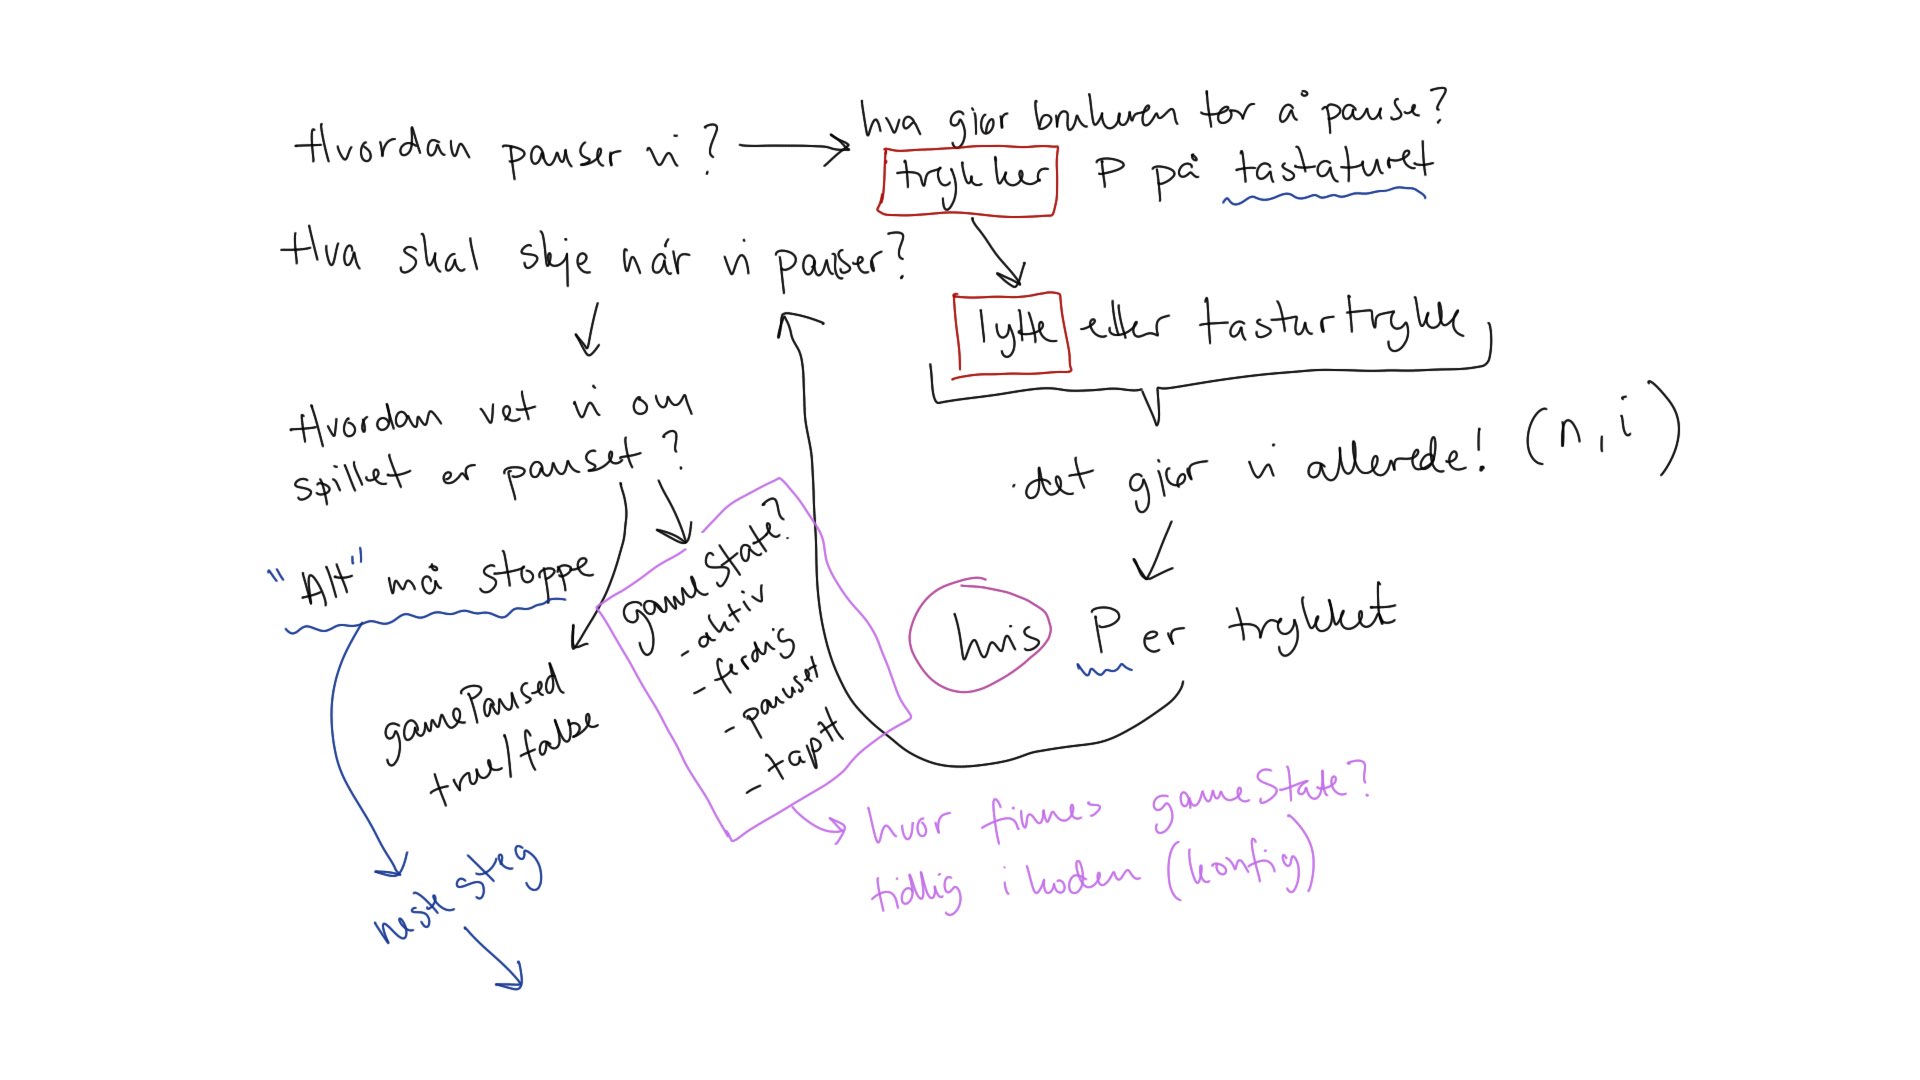 Hvordan pauser vi?
hva gjør brukeren for å pause?
trykker P på tastaturet
Hva skal skje når vi pauser?
lytte etter tasturtrykk
det gjør vi allerede! (n, i)
hvis P er trykket
Hvordan vet vi om
spillet er pauset?
"Alt" må stoppe
gamePaused
true/false
gameState?
- aktiv
- ferdig
- pauset
- tapt
hvor finnes gameState?
tidlig i koden (konfig)
neste steg